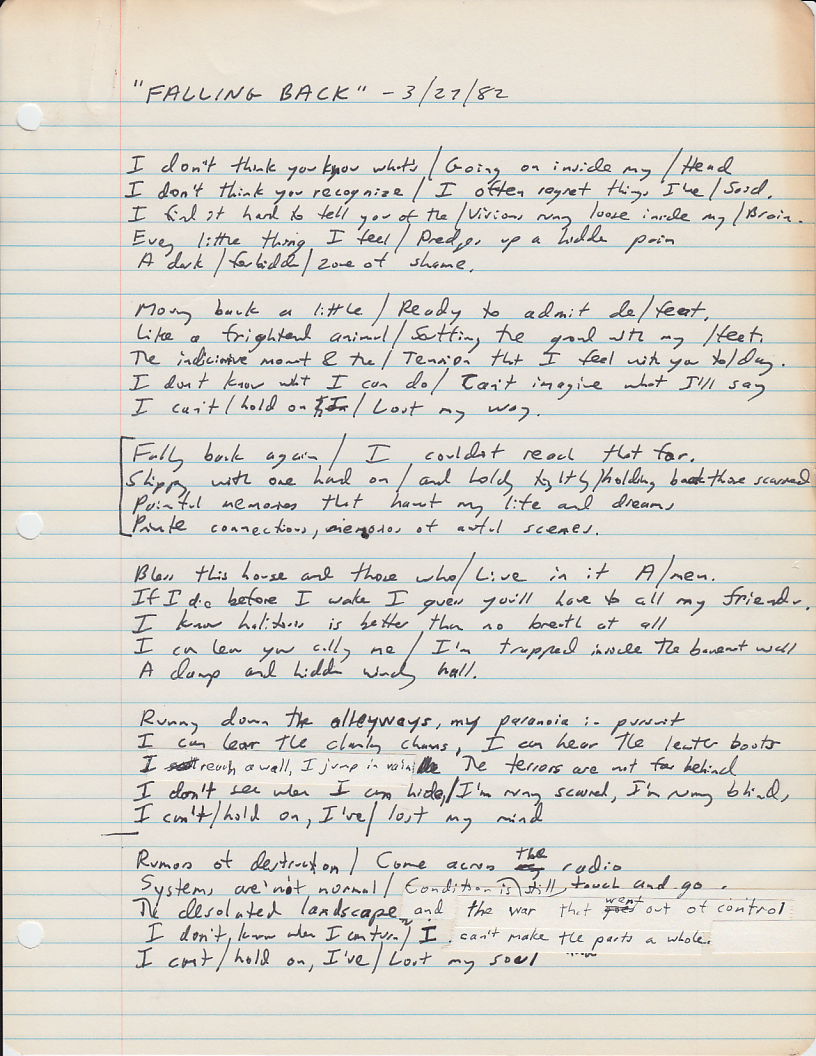 "FALLING BACK" - 3/27/82
I don't think you know what's / Going on inside my / Head
I don't think you recognize / I often regret things I've / Said.
I find it hard to tell you of the / Visions runng loose inside my / Brain.
Every little thing I feel / Predges up a hidde pain
A dark / forbidde / zone of shame.
Movng back a little / Ready to admit de/feat,
Like a frightend animal / Scuttling the grond with my / feet.
The indicisive momt & the / Tension that I feel with you to/day.
I dont know what I can do / Can't imagine what I'll say
I can't / hold on / Lost my way.
Fallg back again / I couldnt reach that far.
Slippg with one hand on / and holdg tightly / holding back those scarred
Painful memories that haunt my life and dreams
Private connections, memories of awful scenes.
Bless this house and those who / Live in it A/men.
If I die before I wake I guess you'll have to call my friends.
I know halitosis is better than no breath at all
I can hear you callg me / I'm trapped inside the basement wall
A damp and hidden windy hall.
Runng down the alleyways, my paranoia in pursuit
I can hear the clankg chains, I can hear the leather boots
I reach a wall, I jump in vain The terrors are not far behind
I don't see where I can hide, / I'm runng scared, I'm runng blind,
I can't / hold on, I've / lost my mind
Rumors of destruction / Come across the radio
Systems are not normal / Condition is still touch and go.
The desolated landscape and the war that went out of control
I don't know when I can turn / I can't make the parts a whole.
I cant / hold on, I've / Lost my soul